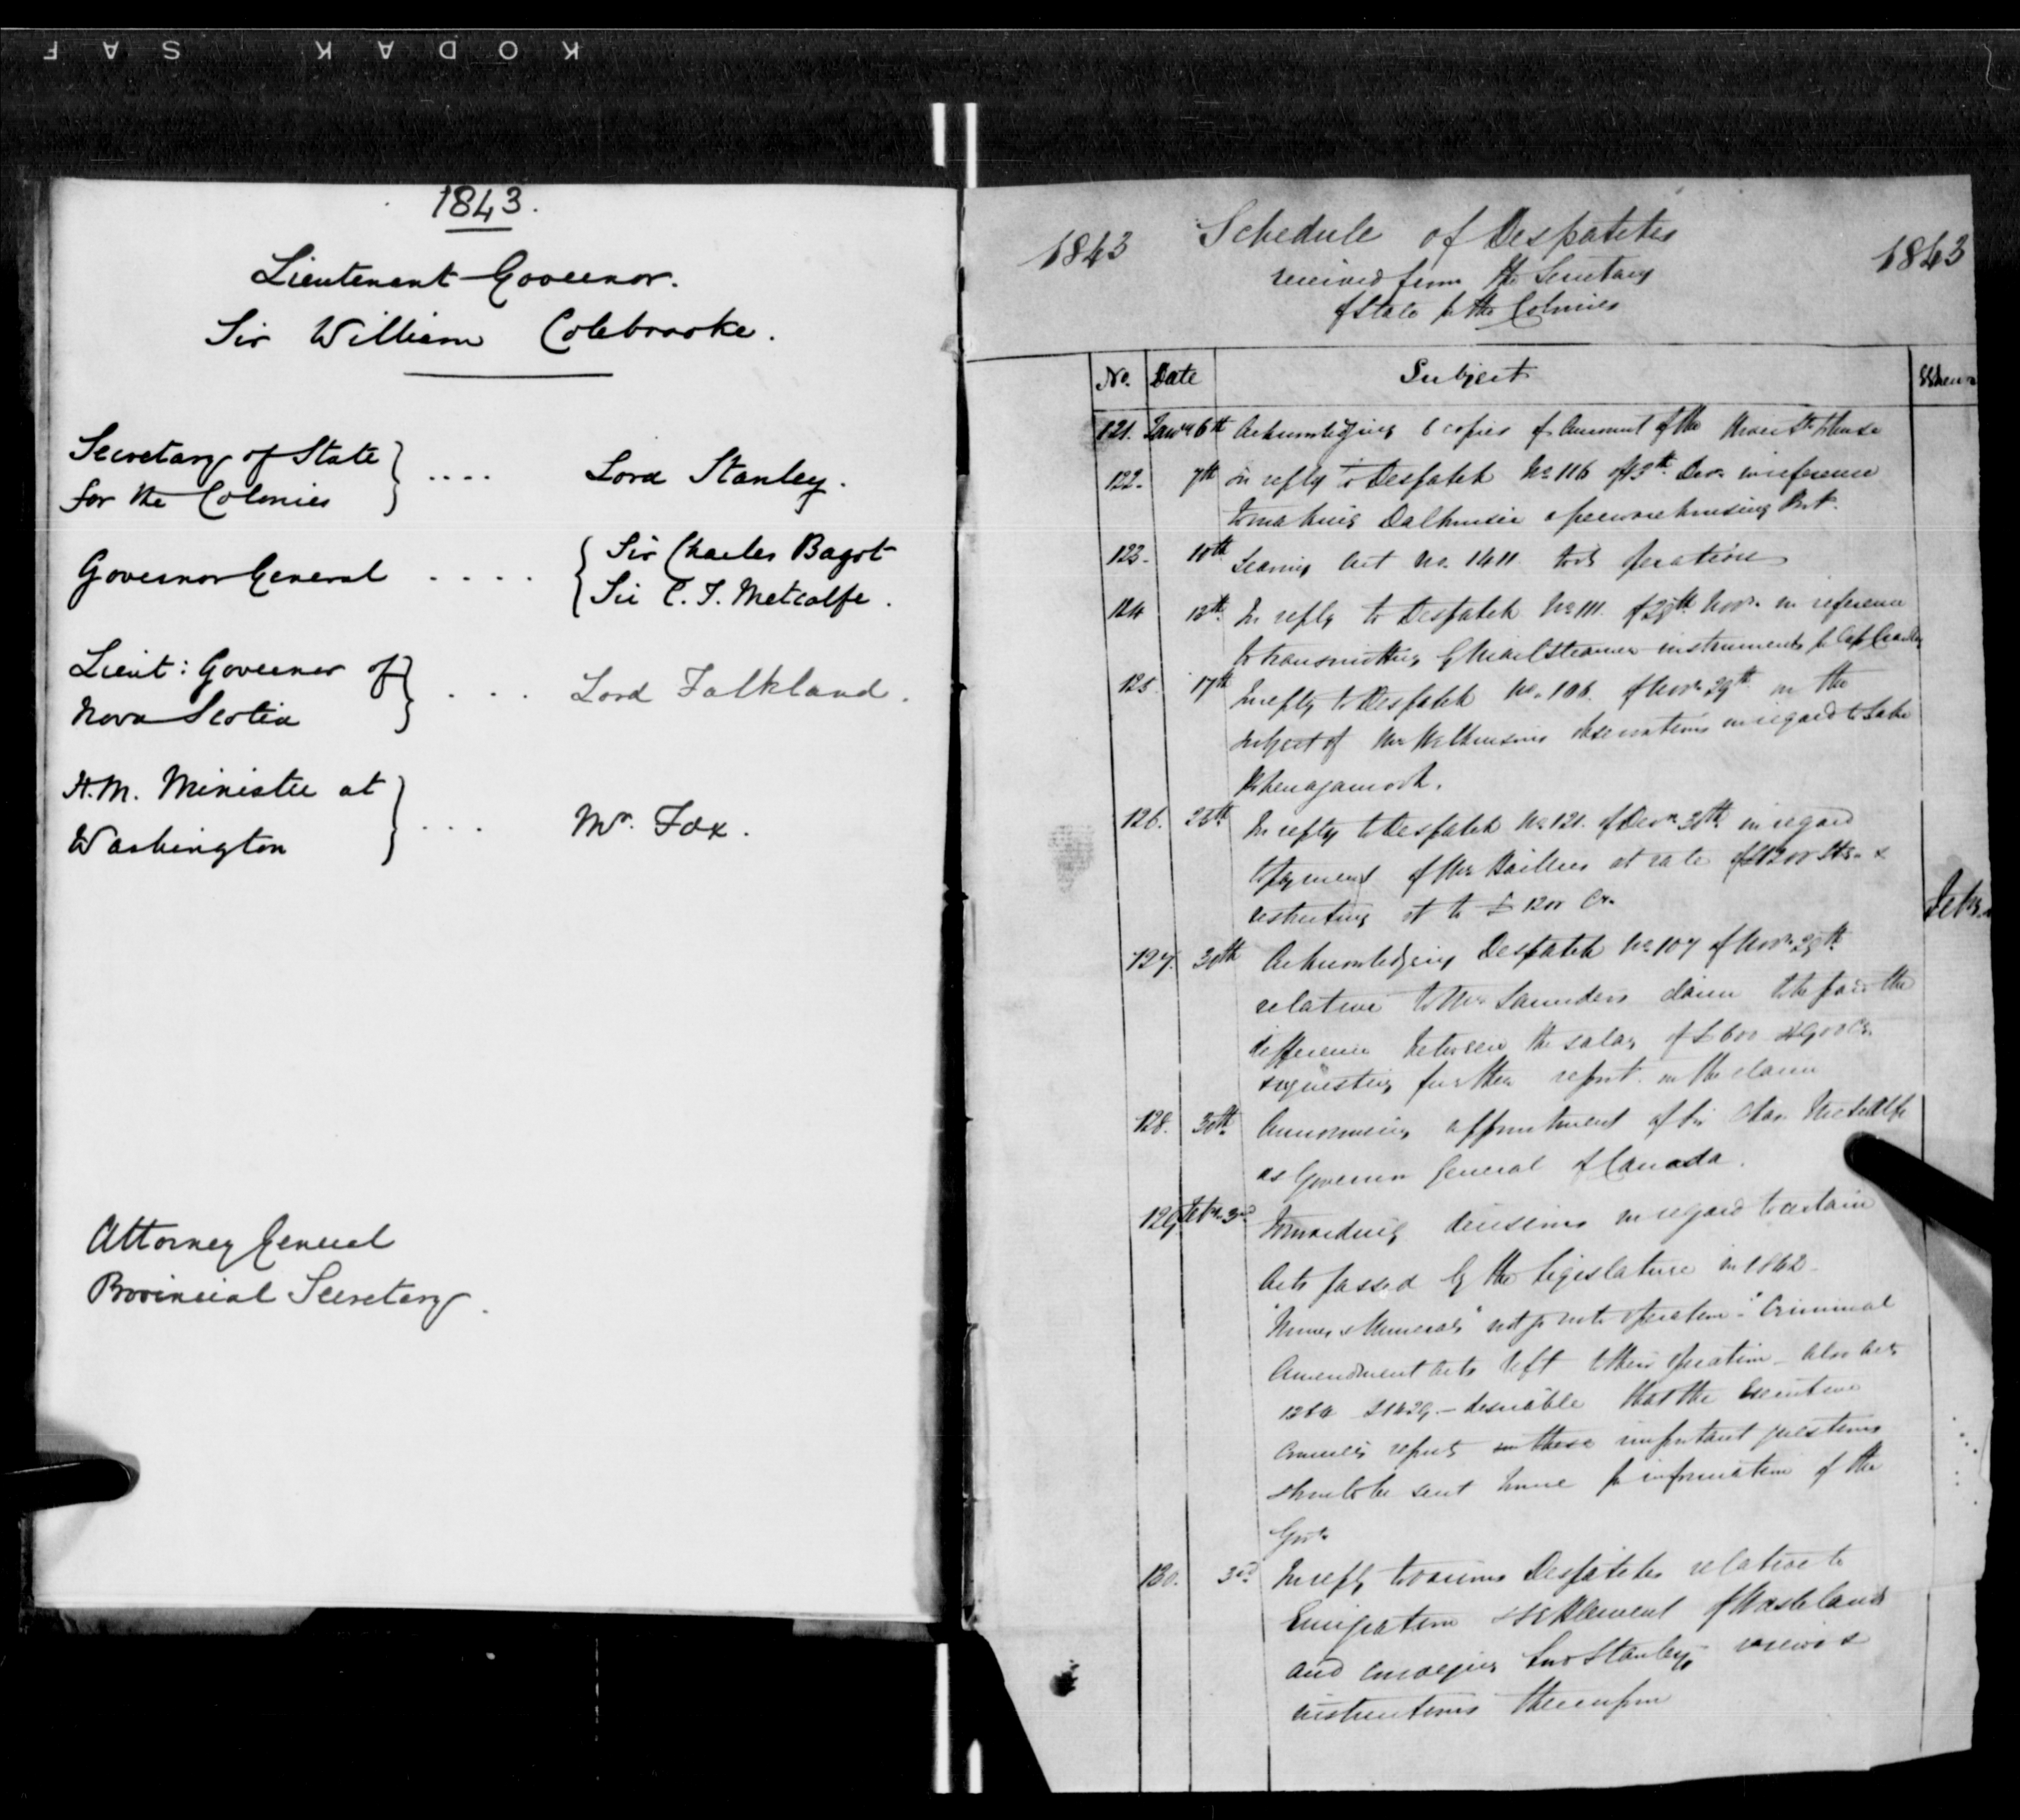 KODAK SAF
1843.
Lieutenant Governor.
Sir William Colebrooke.
Secretary of State
for the Colonies } .... Lord Stanley.
Governor General .... { Sir Charles Bagot
Sir C. T. Metcalfe.
Lieut: Governor of
Nova Scotia } ... Lord Falkland.
H.M. Minister at
Washington } ... Mr. Fox.
Attorney General
Provincial Secretary.
1843 Schedule of Despatches 1843
received from the Secretary
of State for the Colonies
No. Date Subject
121. Jany 6th Acknowledging 6 copies of Account of the
122. 7th In reply to Despatch No 116 of 13th Decr in reference
to making Dalhousie a free warehousing Port.
123. 10th Leaving Act No. 1411 to its operation
124 12th In reply to Despatch No 111. of 28th Novr in reference
to transmitting by Mail Steamer instruments for Capt
125 17th In reply to Despatch No. 106. of Novr 29th on the
subject of Mr Wilkinsons observations in regard to Lake
126. 25th In reply to Despatch No 121. of Decr 30th in regard
to payment of Mr Baillie at rate of £1200 Stg. &
restricting it to £1200 Cy.
127. 30th Acknowledging Despatch No 107 of Novr 29th
relative to Mr Saunders claim to be paid the
difference between the salary of £600
requesting further report on the claim
128. 30th Announcing appointment of Sir Chas. Metcalfe
as Governor General of Canada.
129 Feby 3rd Forwarding decisions in regard to certain
Acts passed by the Legislature in 1842
"Mines & Minerals" not go into operation - "Criminal
Amendment Acts left to their operation - also Acts
& 1429 - desirable that the Executive
Councils reports on these important questions
should be sent home for information of the
Govt.
130. 3rd In reply to various Despatches relative to
Emigration & Settlement of Waste lands
and conveying Lord Stanley's views &
instructions thereupon